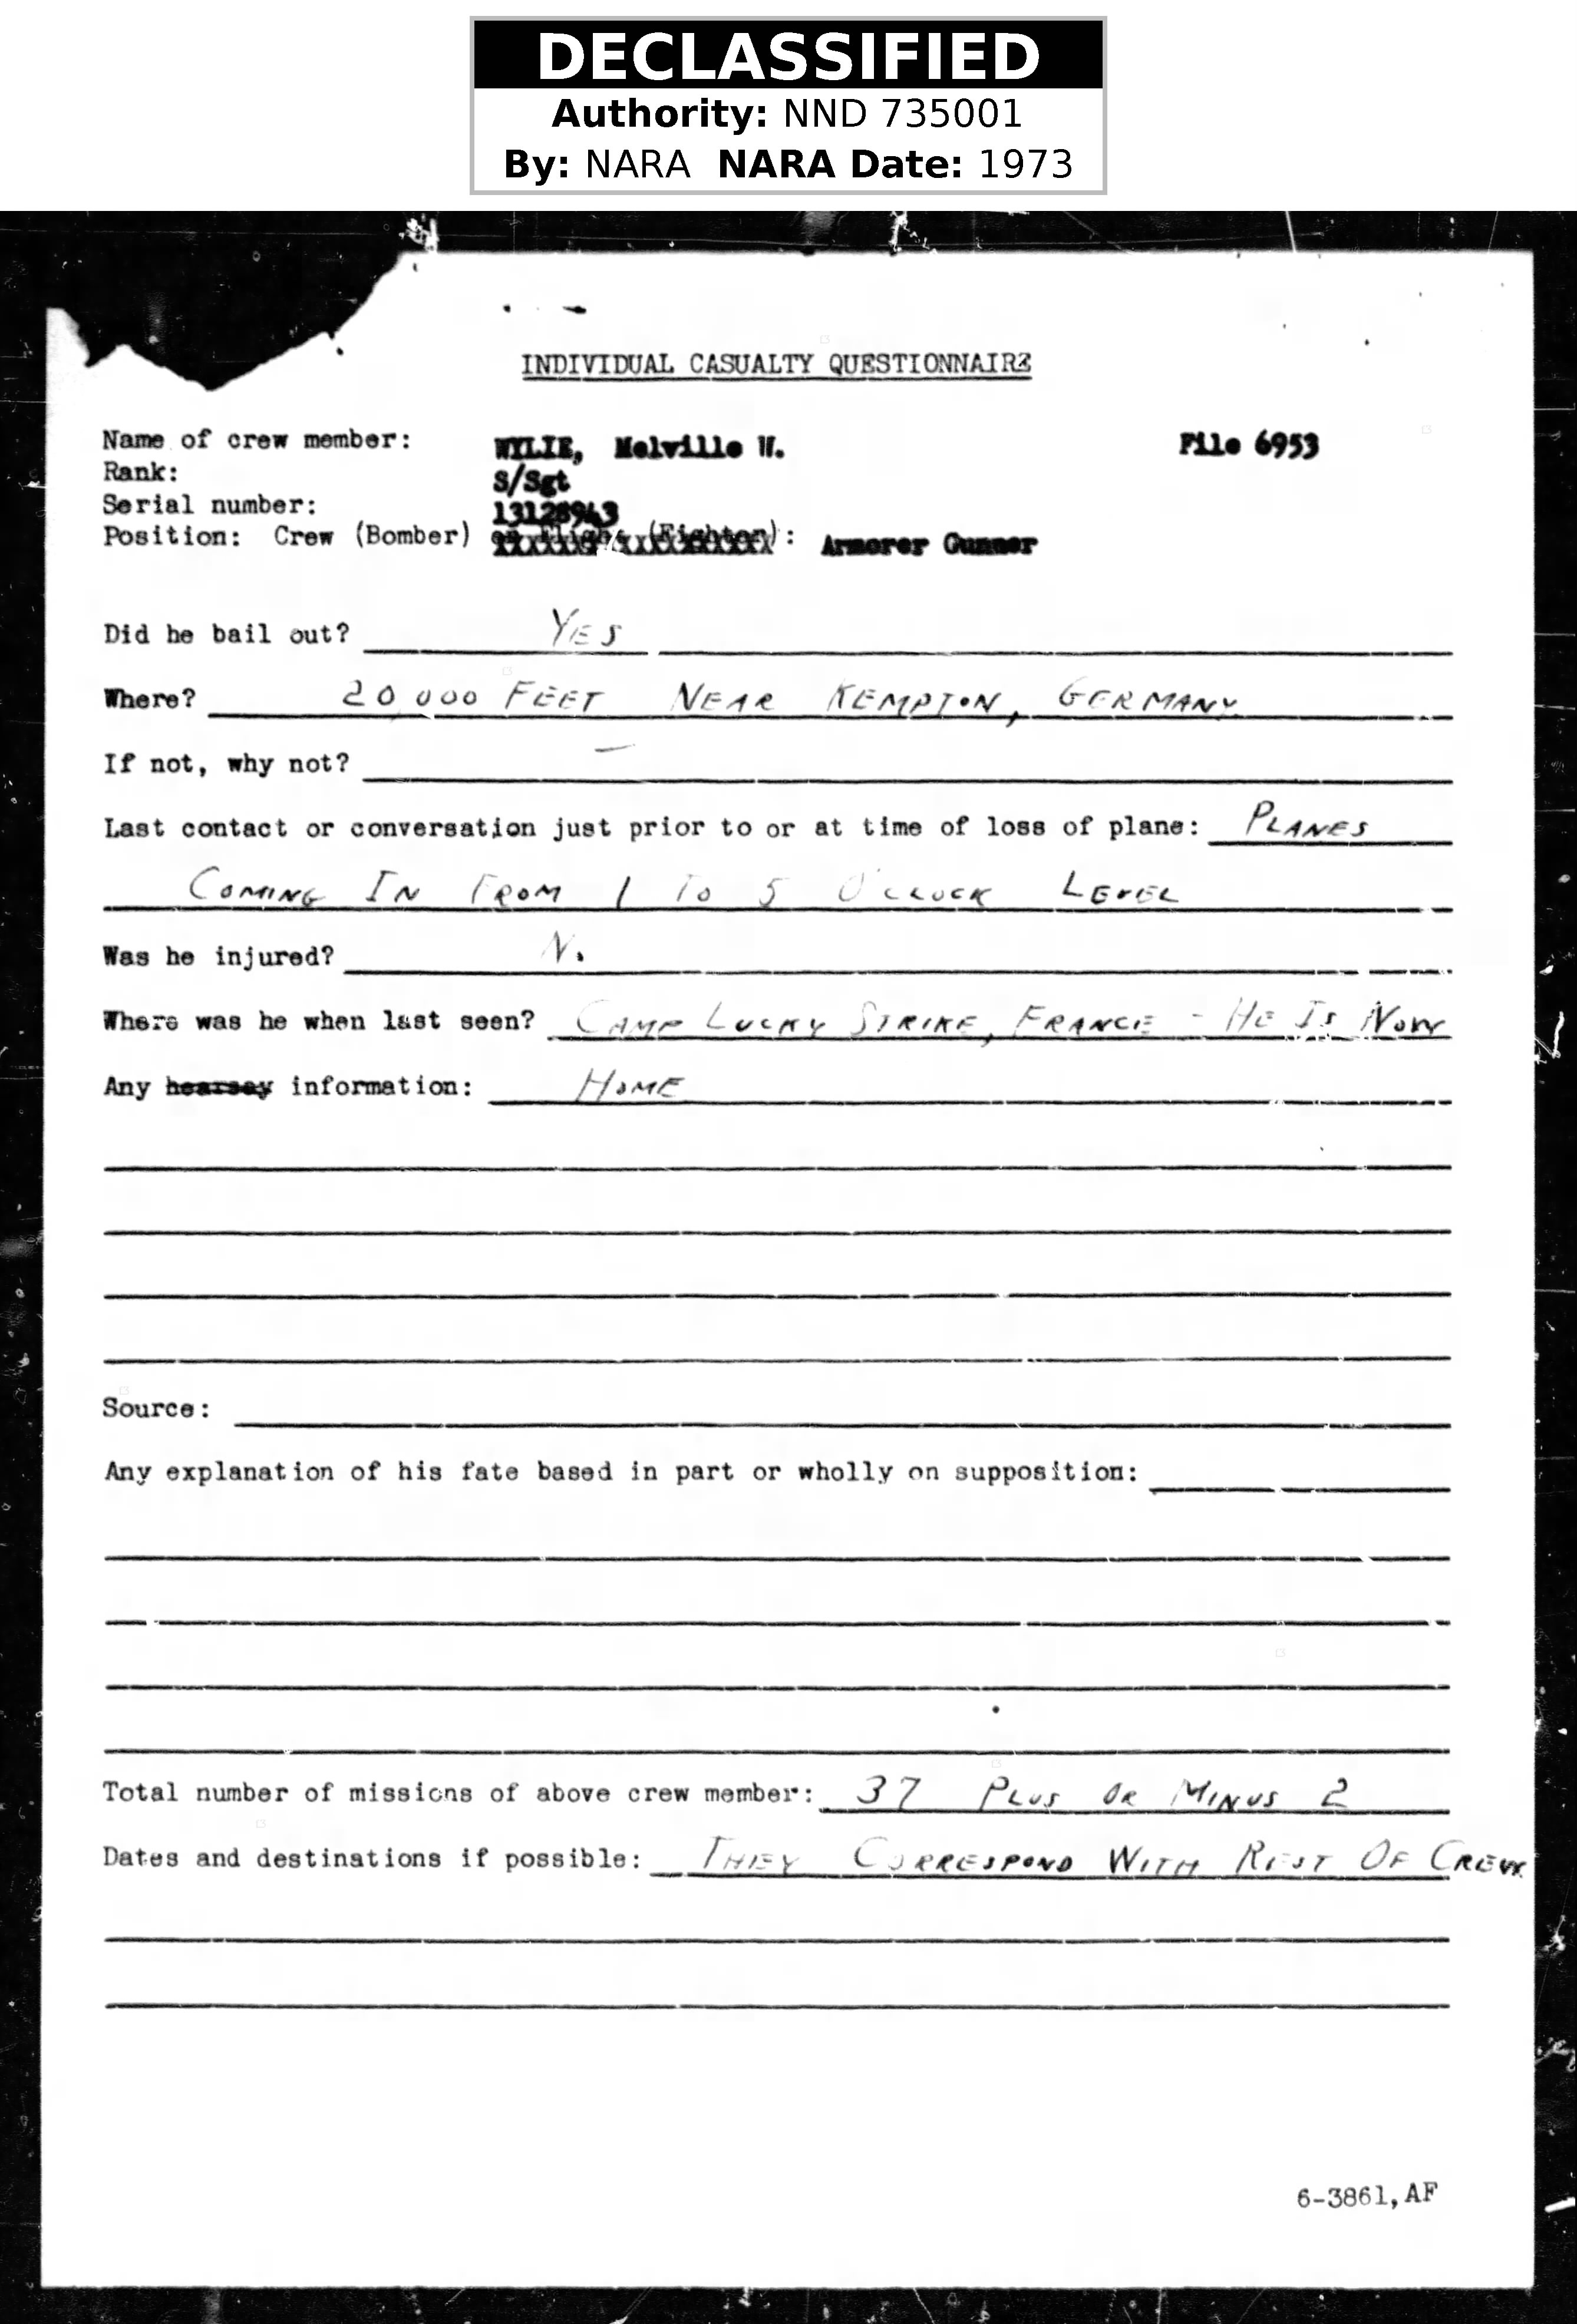 DECLASSIFIED
Authority: NND 735001
By: NARA NARA Date: 1973
INDIVIDUAL CASUALTY QUESTIONNAIRE
Name of crew member: WYLIE, Melville W. File 6953
Rank: S/Sgt
Serial number: 13128943
Position: Crew (Bomber) or Flight (Fighter): Armorer Gunner
Did he bail out? YES
Where? 20,000 FEET NEAR KEMPTON, GERMANY
If not, why not? —
Last contact or conversation just prior to or at time of loss of plane: PLANES
COMING IN FROM 1 TO 5 O'CLOCK LEVEL
Was he injured? No
Where was he when last seen? CAMP LUCKY STRIKE, FRANCE - HE IS NOW
Any hearsay information: HOME
Source:
Any explanation of his fate based in part or wholly on supposition:
Total number of missions of above crew member: 37 PLUS OR MINUS 2
Dates and destinations if possible: THEY CORRESPOND WITH REST OF CREW
6-3861,AF